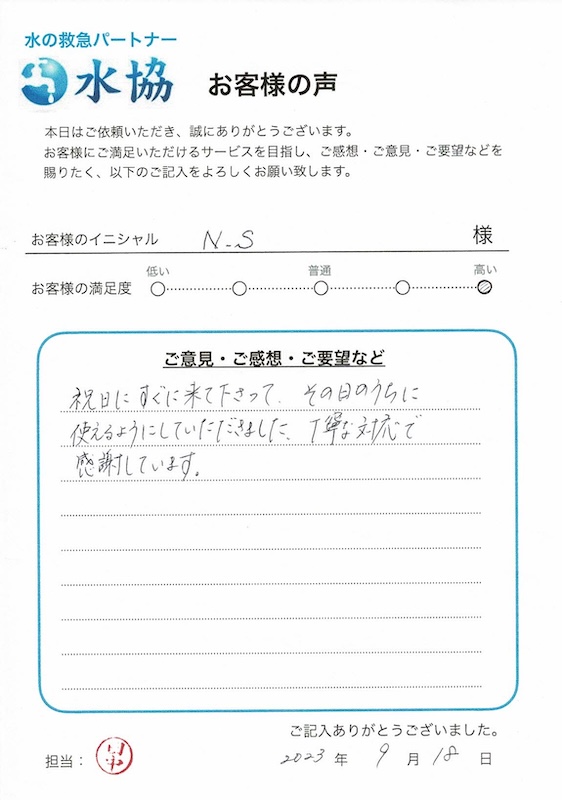 水の救急パートナー
水協 お客様の声
本日はご依頼いただき、誠にありがとうございます。
お客様にご満足いただけるサービスを目指し、ご感想・ご意見・ご要望などを
賜りたく、以下のご記入をよろしくお願い致します。
お客様のイニシャル N-S 様
低い 普通 高い
お客様の満足度
ご意見・ご感想・ご要望など
祝日にすぐに来て下さって、その日のうちに
使えるようにしていただきました、丁寧な対応で
感謝しています。
ご記入ありがとうございました。
担当: 2023年 9月 18日